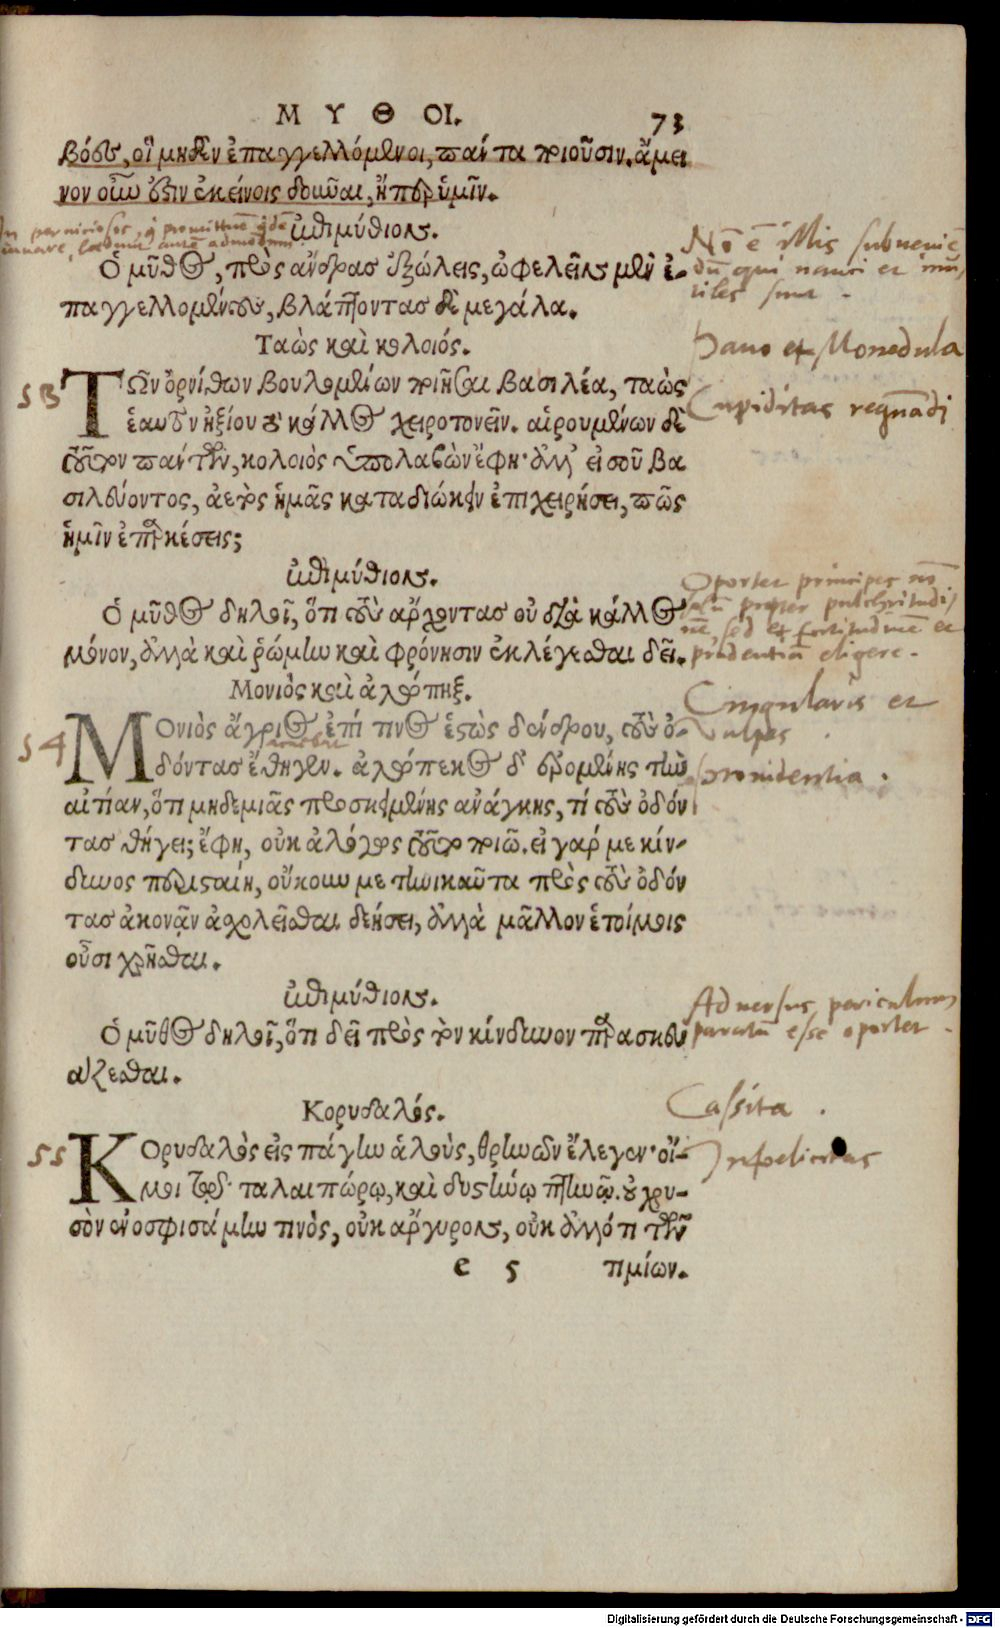 ΜΥΘΟΙ. 73
βόας, οἳ μηδὲν ἐπαγγελλόμενοι, πάντα ποιοῦσιν. ἄμει
νον οὖν ἐστιν ἐκείνοις δοῦναι, ἤπερ ὑμῖν.
ἐπιμύθιον.
Ὁ μῦθος, πρὸς ἄνδρας ἐξώλεις, ὠφελεῖν μὲν ἐ-
παγγελλομένους, βλάπτοντας δὲ μεγάλα.
Non est illis subuenien
dum qui nauci et inu
tiles sunt.
Ταὼς καὶ κολοιός.
Pauo et Monedula
53
ΤΩν ὀρνίθων βουλομένων ποιῆσαι βασιλέα, ταὼς
ἑαυτὸν ἠξίου διὰ κάλλος χειροτονεῖν. αἱρουμένων δὲ
τοῦτον πάντων, κολοιὸς ὑπολαβὼν ἔφη· ἀλλ' εἰ σοῦ βα
σιλεύοντος, ἀετὸς ἡμᾶς καταδιώκειν ἐπιχειρήσει, πῶς
ἡμῖν ἐπαρκέσεις;
Cupiditas regnandi
ἐπιμύθιον.
Ὁ μῦθος δηλοῖ, ὅτι τοὺς ἄρχοντας οὐ διὰ κάλλος
μόνον, ἀλλὰ καὶ ῥώμην καὶ φρόνησιν ἐκλέγεσθαι δεῖ.
Oportet principes non
solum propter pulchritudi
nem sed et fortitudinem et
prudentiam eligere.
Μονιὸς καὶ ἀλώπηξ.
Singularis et
Vulpes
54
ΜΟνιὸς ἄγριος ἐπί τινος ἑστὼς δένδρου, τοὺς ὀ-
δόντας ἔθηγεν. ἀλώπεκος δ' ἐρομένης τὴν
αἰτίαν, ὅτι μηδεμιᾶς προσκειμένης ἀνάγκης, τί τοὺς ὀδόν
τας θήγει; ἔφη, οὐκ ἀλόγως τοῦτο ποιῶ. εἰ γάρ με κίν-
δυνος περισταίη, οὔκουν με τηνικαῦτα πρὸς τοὺς ὀδόν
τας ἀκονᾷν ἀσχολεῖσθαι δεήσει, ἀλλὰ μᾶλλον ἑτοίμοις
οὖσι χρῆσθαι.
prouidentia.
ἐπιμύθιον.
Ὁ μῦθος δηλοῖ, ὅτι δεῖ πρὸς τὸν κίνδυνον παρασκευ
άζεσθαι.
Aduersus periculum
paratum esse oportet.
Κορυδαλός.
Cassita.
55
ΚΟρυδαλὸς εἰς πάγην ἁλοὺς, θρηνῶν ἔλεγεν· οἴ-
μοι τῷ ταλαιπώρῳ, καὶ δυστήνῳ πτηνῷ. οὐ χρυ-
σὸν ἐνοσφισάμην τινὸς, οὐκ ἄργυρον, οὐκ ἄλλό τι τῶν
Infelicitas
e 5 τιμίων.
Digitalisierung gefördert durch die Deutsche Forschungsgemeinschaft - DFG